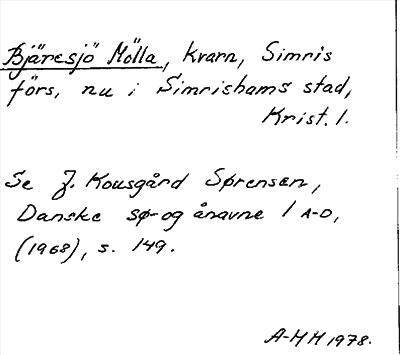 Bjäresjö Mölla, kvarn, Simris
förs, nu i Simrishamns stad,
Krist. l.
Se J. Kousgård Sørensen,
Danske sø- og ånavne I A-D,
(1968), s. 149.
A-HH 1978.